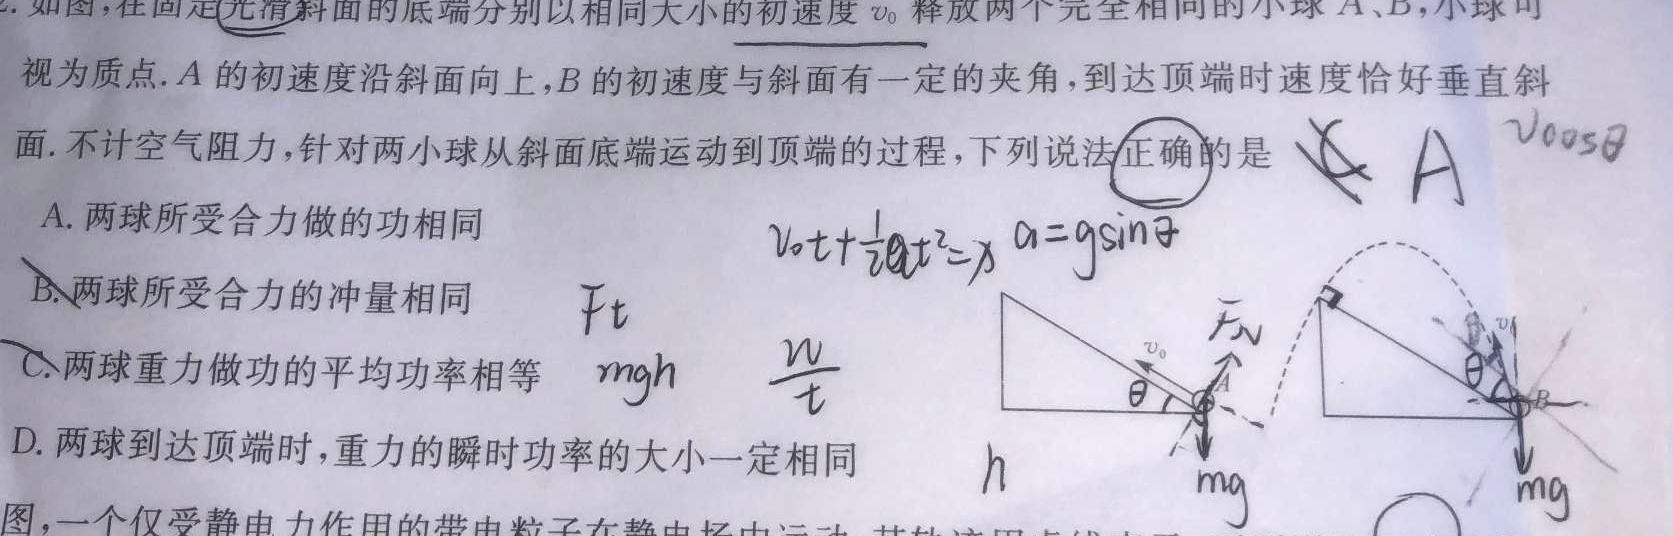 2.如图,在固定光滑斜面的底端分别以相同大小的初速度 v₀ 释放两个完全相同的小球 A、B,小球可
视为质点.A 的初速度沿斜面向上,B 的初速度与斜面有一定的夹角,到达顶端时速度恰好垂直斜
面.不计空气阻力,针对两小球从斜面底端运动到顶端的过程,下列说法正确的是
A
v cosθ
A.两球所受合力做的功相同
v₀t+½at²=x a=gsinθ
B.两球所受合力的冲量相同
Ft
C.两球重力做功的平均功率相等
mgh
W/t
D.两球到达顶端时,重力的瞬时功率的大小一定相同
h
v₀
θ
A
F_N
mg
θ
B
mg
图,一个仅受静电力作用的带电粒子在静电场中运动